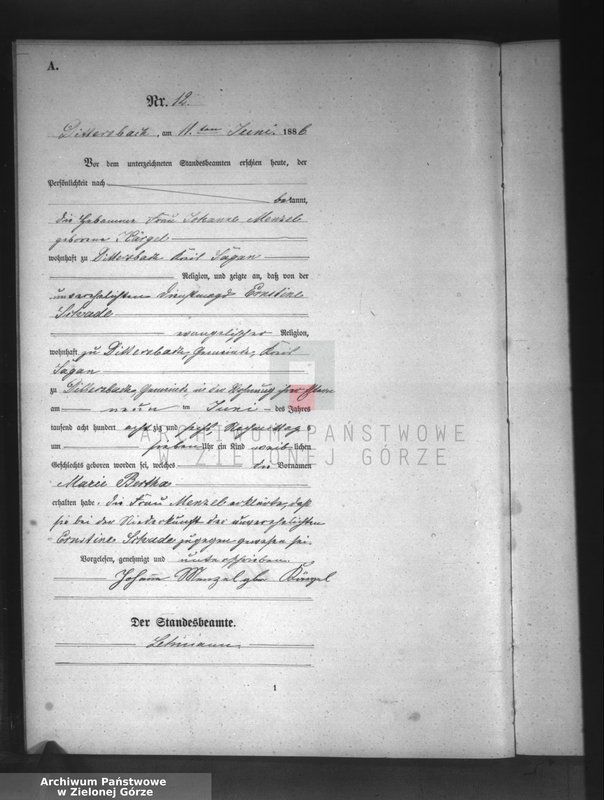 A.
Nr. 12.
Dittersbach, am 11. ten Juni 1886
Vor dem unterzeichneten Standesbeamten erschien heute, der
Persönlichkeit nach
bekannt,
die Hebamme Frau Johanne Menzel
geborene Kärgel
wohnhaft zu Dittersbach Kreis Sagan
Religion, und zeigte an, daß von der
unverehelichten Dienstmagd Ernstine
Schade
evangelischer Religion,
wohnhaft zu Dittersbach, Gemeinde, Kreis
Sagan
zu Dittersbach, Gemeinde, in der Wohnung ihrer Eltern
am neun ten Juni des Jahres
tausend acht hundert achtzig und sechs Nachmittags
um sieben Uhr ein Kind weiblichen
Geschlechts geboren worden sei, welches die Vornamen
Marie Bertha
erhalten habe, die Frau Menzel erklärte, daß
sie bei der Niederkunft der unverehelichten
Ernstine Schade zugegen gewesen sei.
Vorgelesen, genehmigt und unterschrieben
Johanne Menzel geb. Kärgel
Der Standesbeamte.
Lehmann
1
ARCHIWUM PAŃSTWOWE
W ZIELONEJ GÓRZE
Archiwum Państwowe
w Zielonej Górze